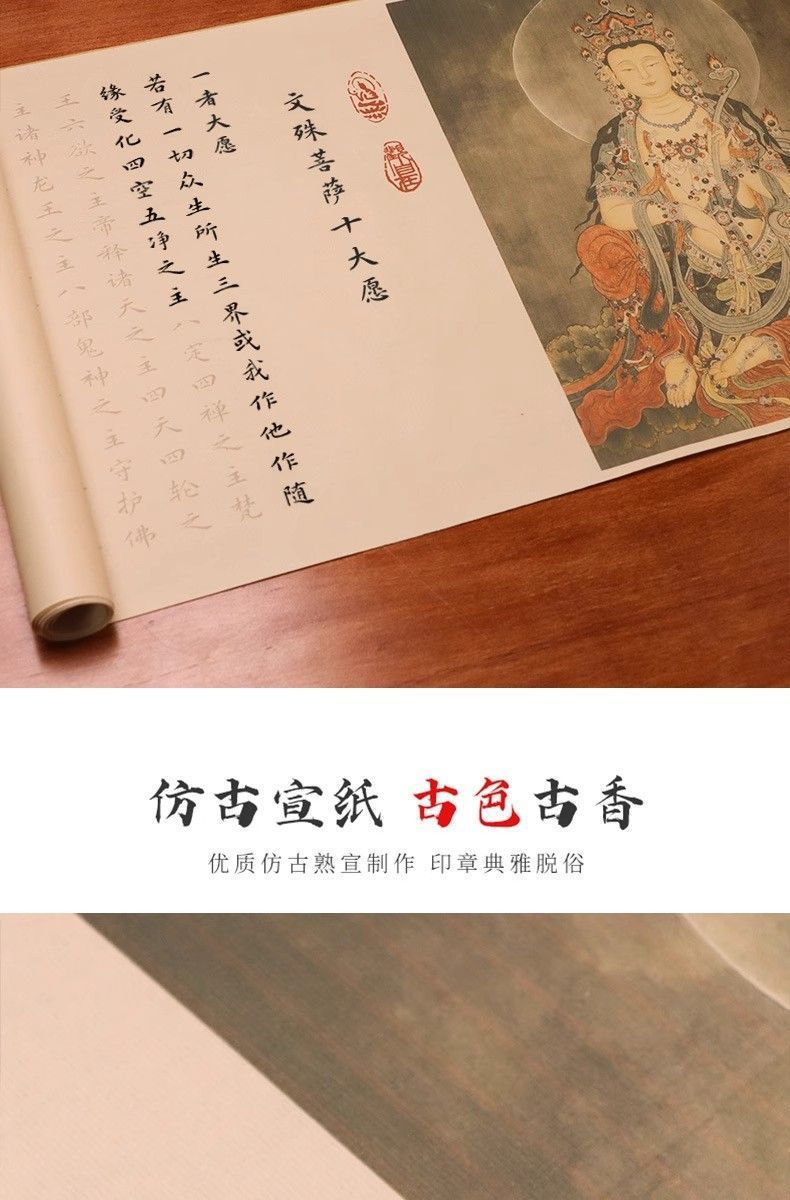 文殊菩萨十大愿
一者大愿
若有一切众生所生三界或我作他作随
缘受化四空五净之主八定四禅之主梵
王六欲之主帝释诸天之主四天四轮之
主诸神龙王之主八部鬼神之主守护佛
仿古宣纸 古色古香
优质仿古熟宣制作 印章典雅脱俗